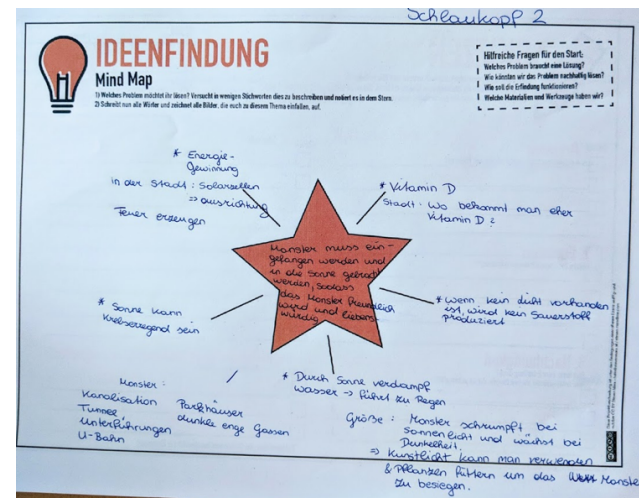 Schlaukopf 2
IDEENFINDUNG
Mind Map
1) Welches Problem möchtet ihr lösen? Versucht in wenigen Stichworten dies zu beschreiben und notiert es in dem Stern.
2) Schreibt nun alle Wörter und zeichnet alle Bilder, die euch zu diesem Thema einfallen, auf.
Hilfreiche Fragen für den Start:
Welches Problem braucht eine Lösung?
Wie könnten wir das Problem nachhaltig lösen?
Wie soll die Erfindung funktionieren?
Welche Materialien und Werkzeuge haben wir?
* Energie-
Gewinnung
in der Stadt: Solarzellen
=> ausrichtung
Feuer erzeugen
* Vitamin D
Stadt: Wo bekommt man eher
Vitamin D?
Monster muss ein-
gefangen werden und
in die Sonne gebracht
werden, sodass
das Monster freundlich
wird und liebens-
würdig
* Sonne kann
Krebserregend sein
* wenn kein Licht vorhanden
ist, wird kein Sauerstoff
produziert
* Durch Sonne verdampf
Wasser -> führt zu Regen
Monster:
Kanalisation
Tunnel
Unterführungen
U-Bahn
Parkhäuser
dunkle enge Gassen
Größe: Monster schrumpft bei
Sonnenlicht und wächst bei
Dunkelheit.
=> Kunstlicht kann man verwenden
& Pflanzen füttern um das Monster
zu besiegen.